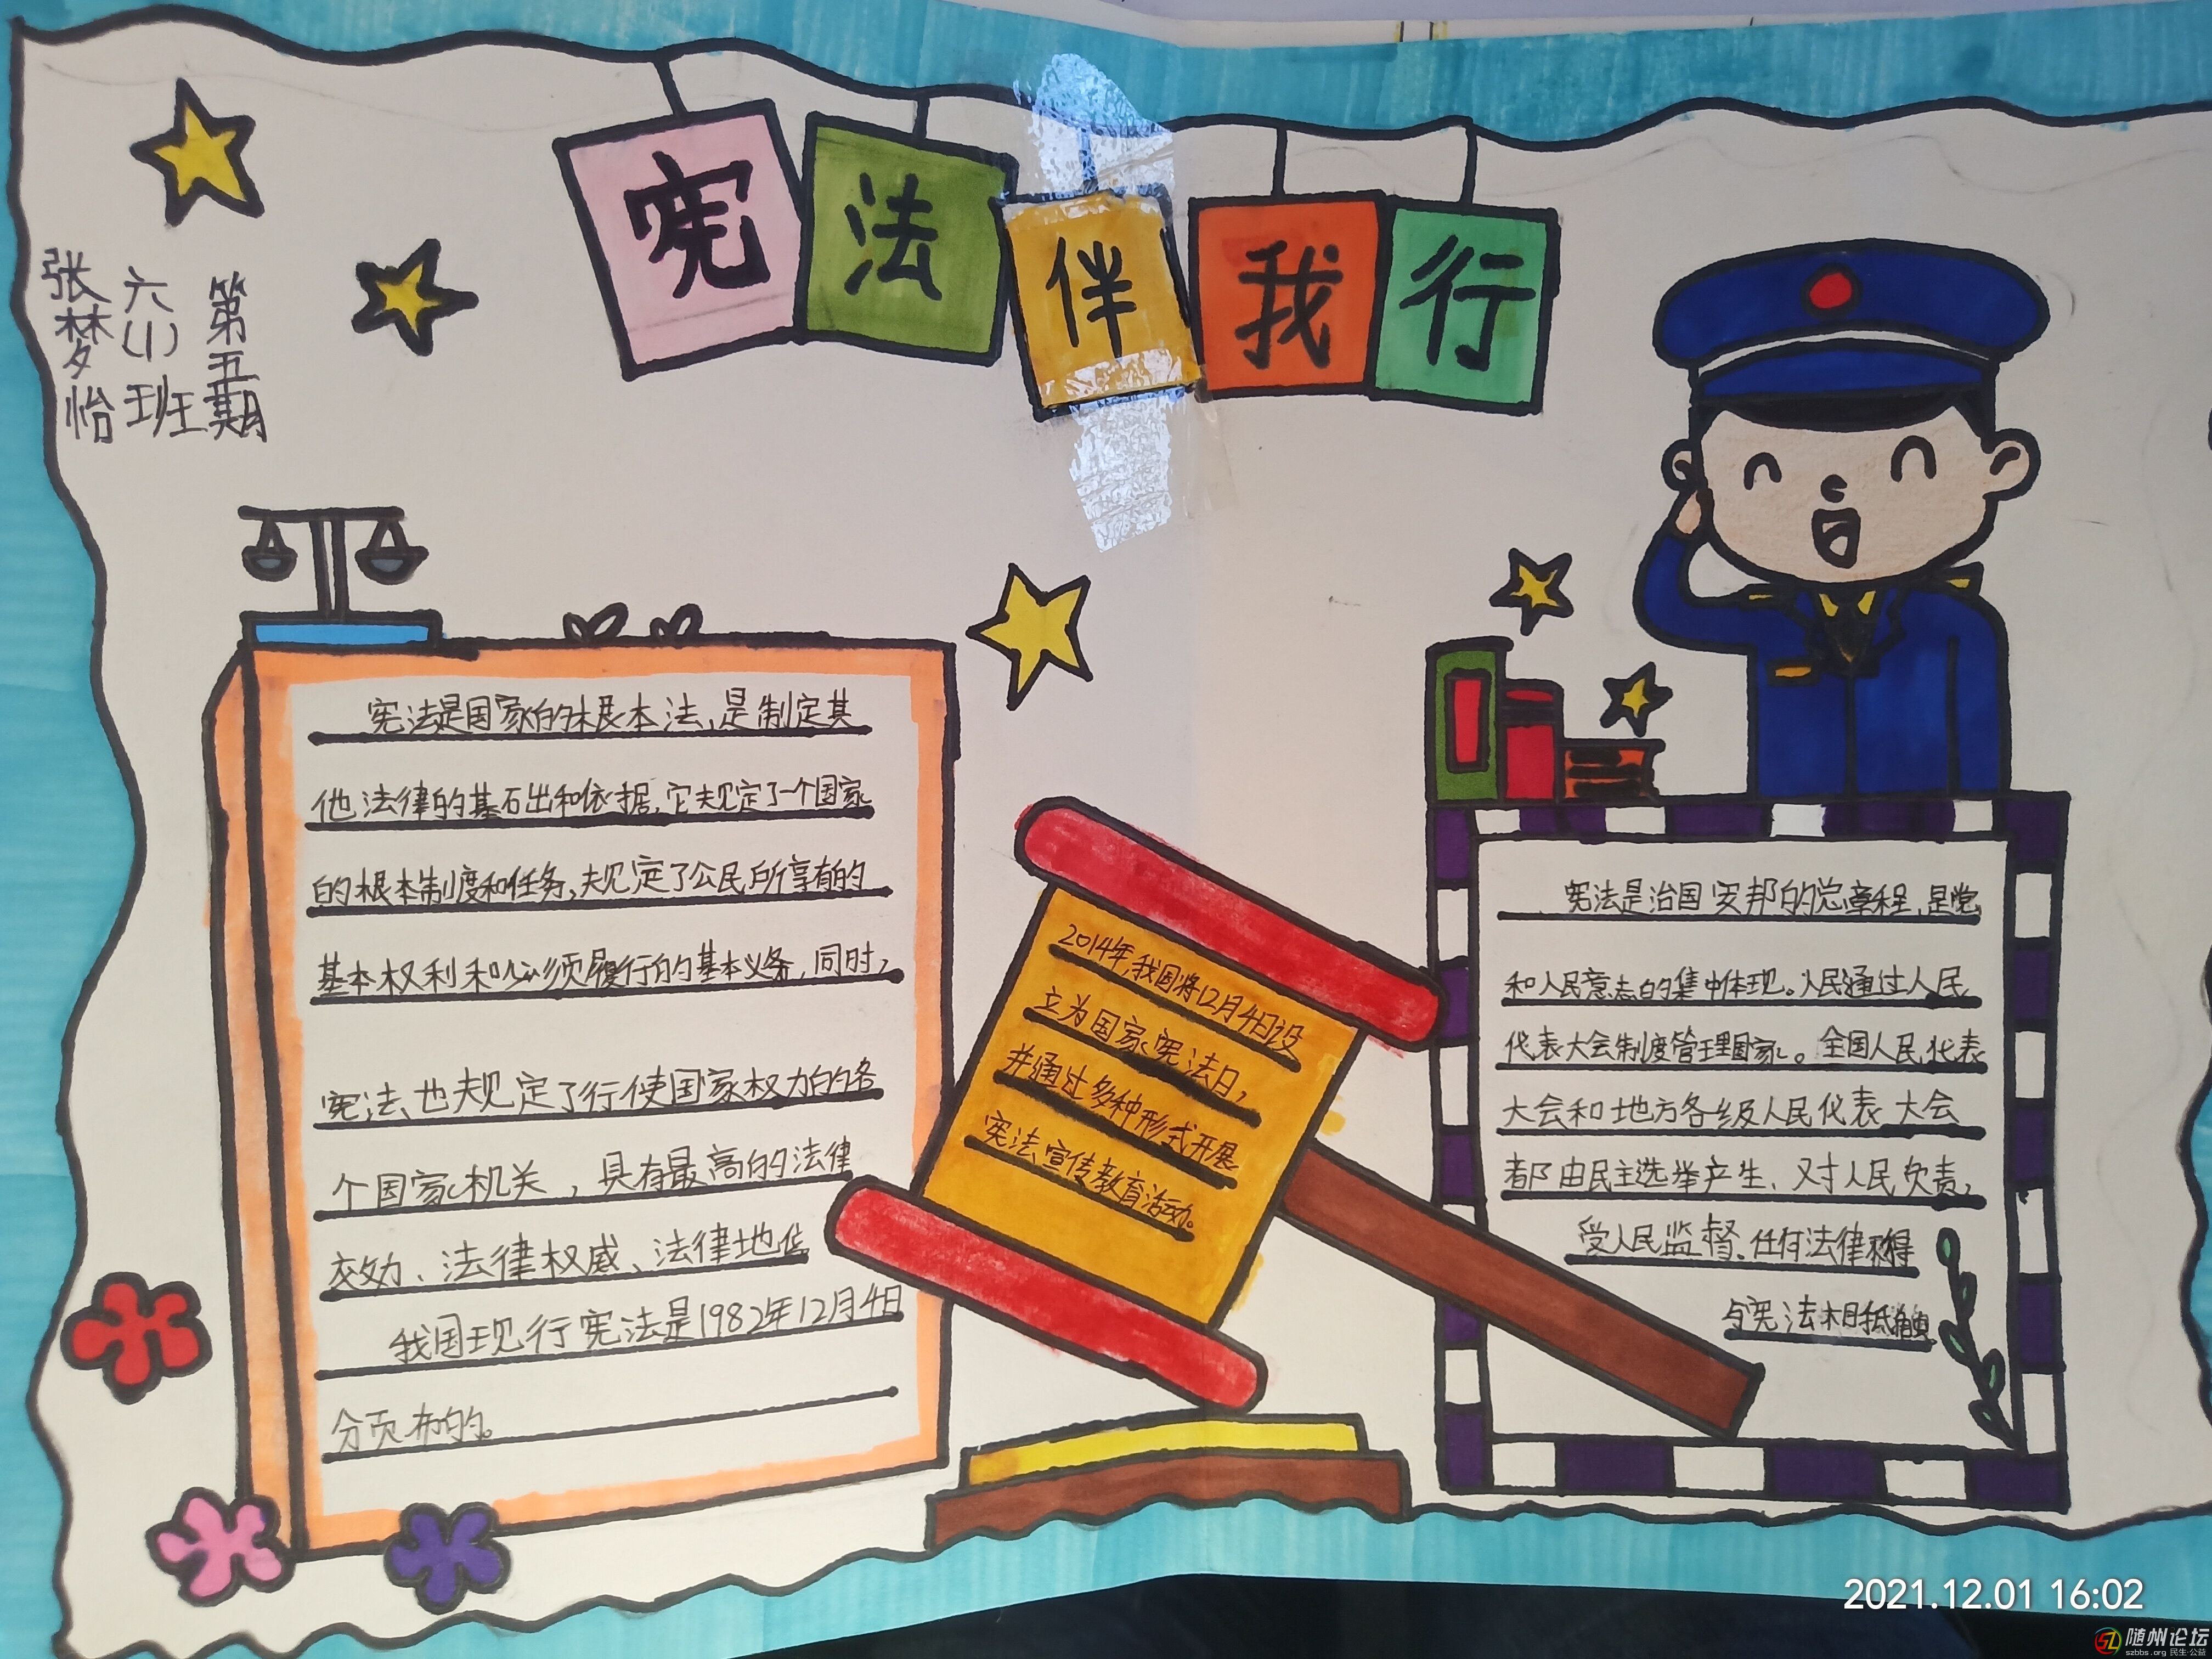 宪法伴我行
第五期
六(1)班
张梦怡
宪法是国家的根本法,是制定其
他法律的基石出和依据,它规定了一个国家
的根本制度和任务,规定了公民所享有的
基本权利和必须履行的基本义务,同时,
宪法也规定了行使国家权力的各
个国家机关,具有最高的法律
效力、法律权威、法律地位
我国现行宪法是1982年12月4日
分页布的。
2014年,我国将12月4日设
立为国家宪法日,
并通过多种形式开展
宪法宣传教育活动。
宪法是治国安邦的总章程,是党
和人民意志的集中体现。人民通过人民
代表大会制度管理国家。全国人民代表
大会和地方各级人民代表大会
都由民主选举产生、对人民负责,
受人民监督.任何法律不得
与宪法相抵触
2021.12.01 16:02
随州论坛
szbbs.org 民生·公益